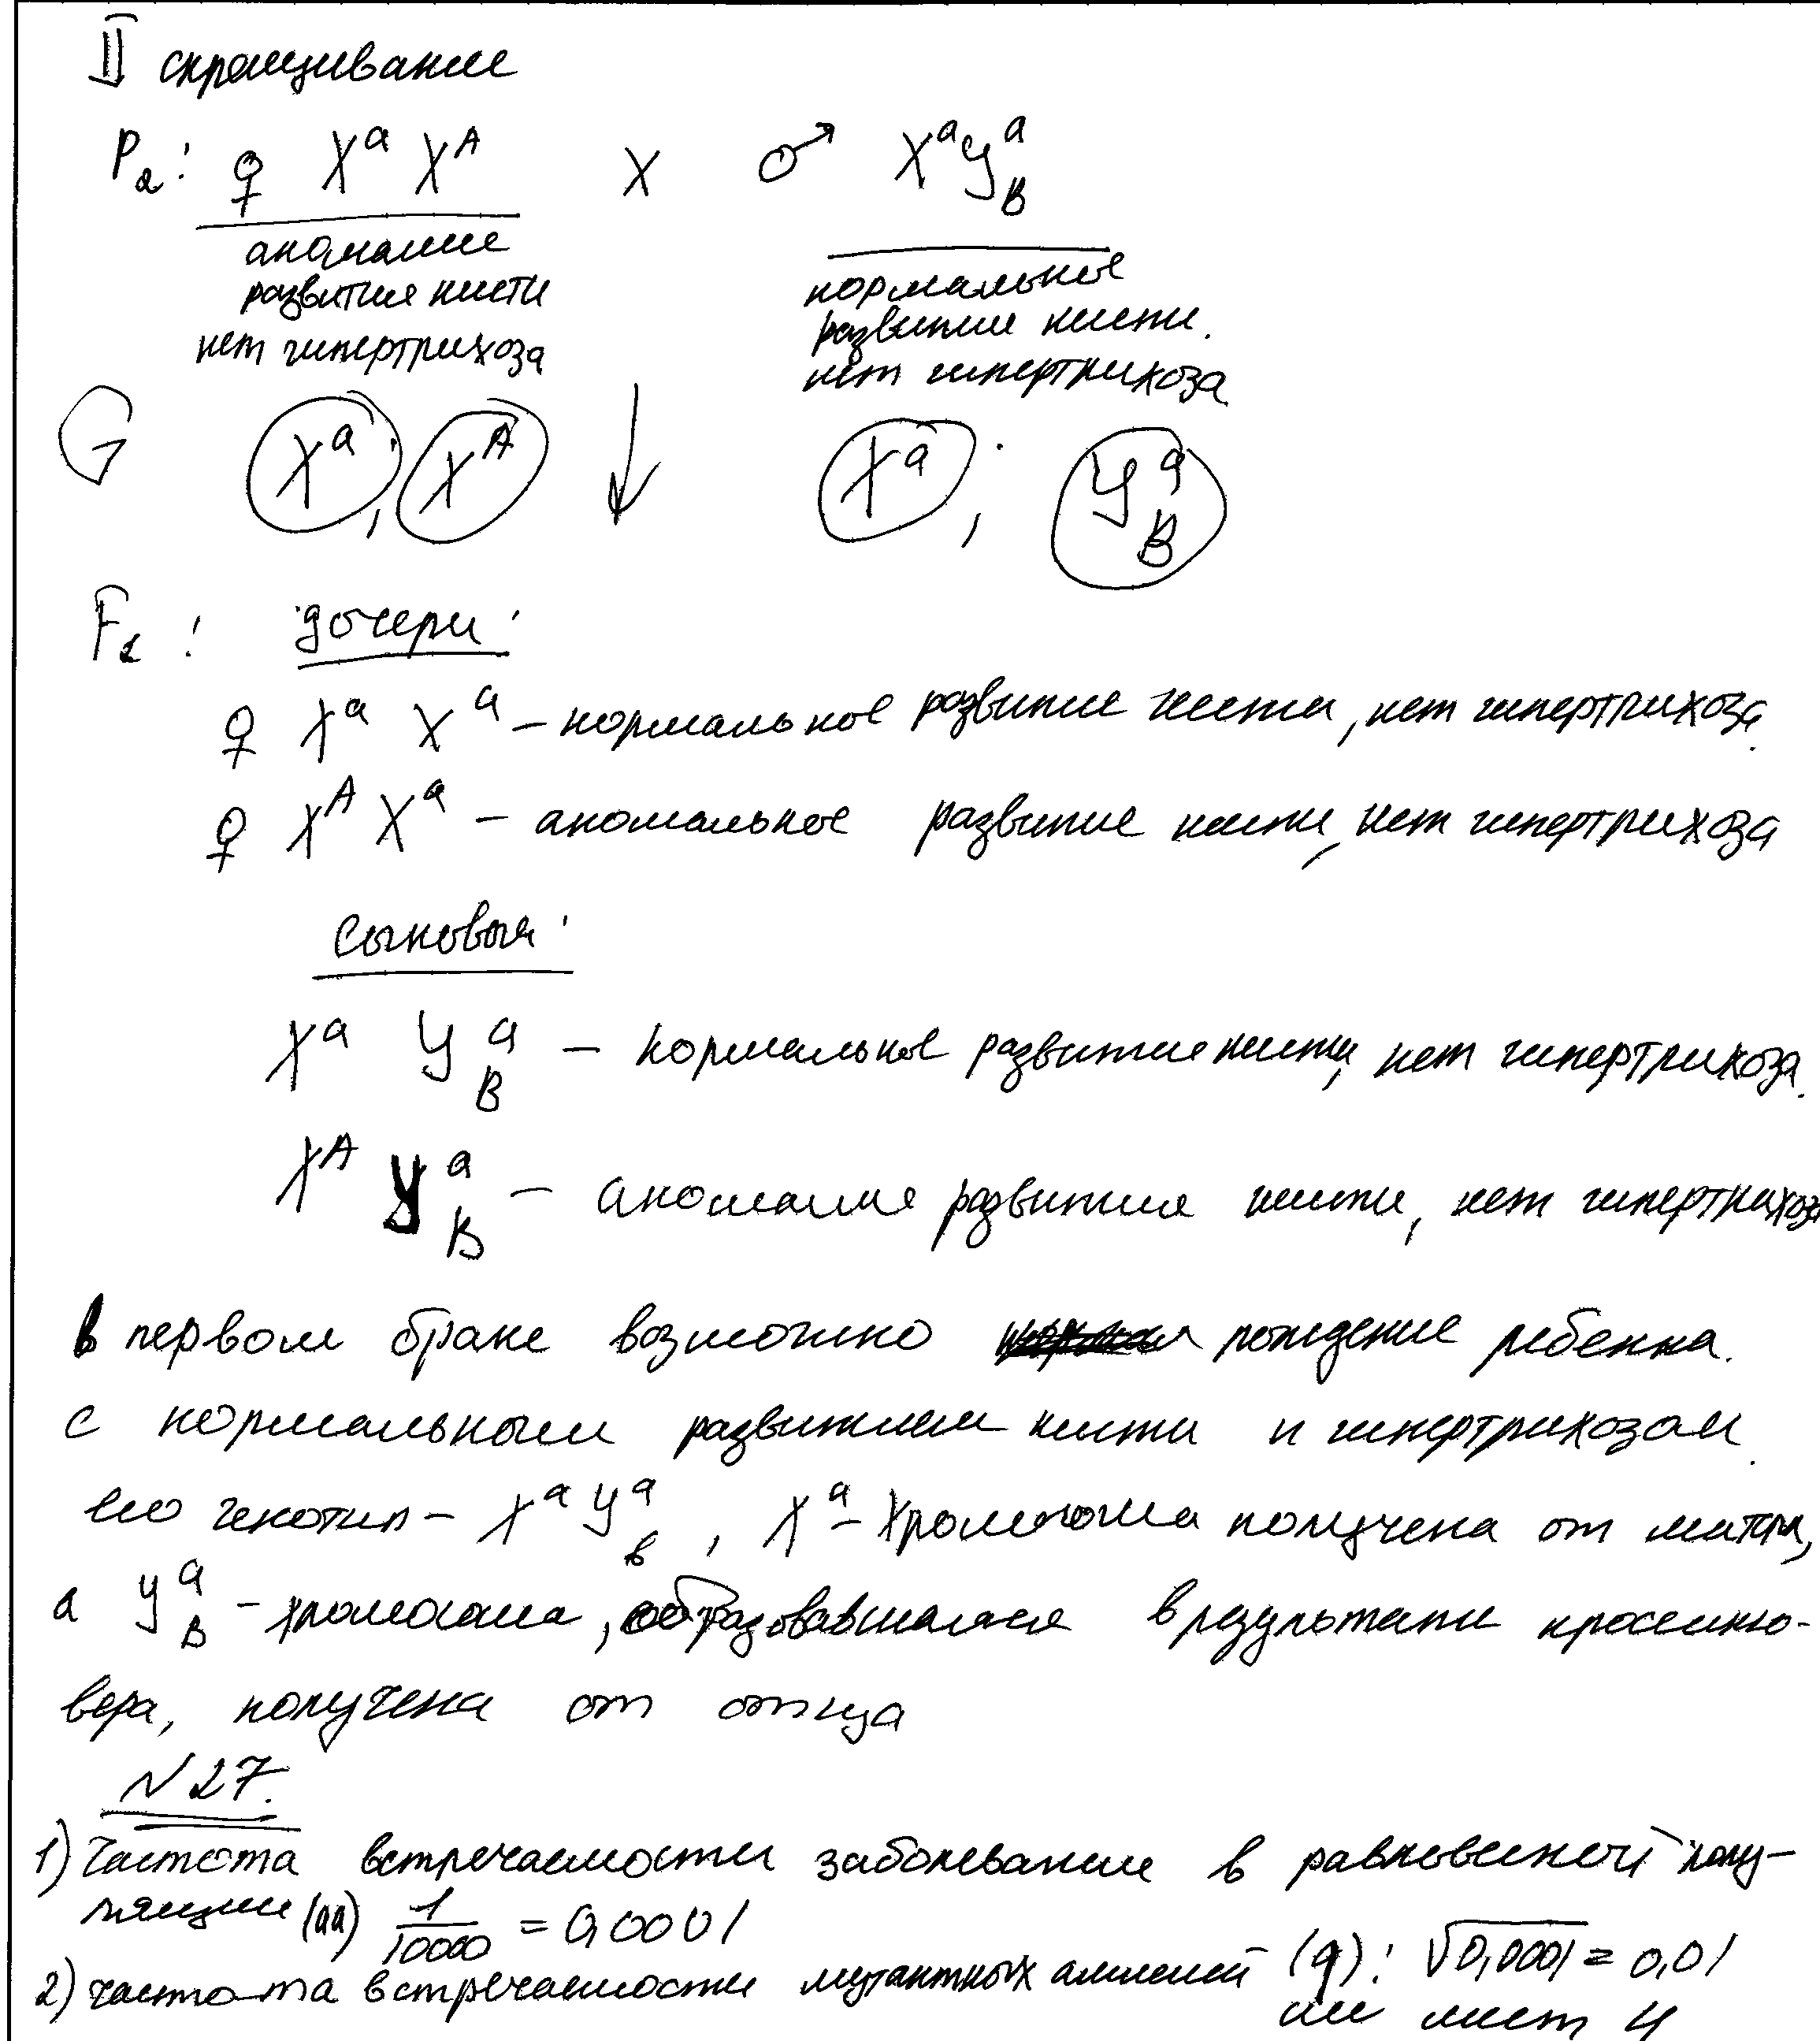 II скрещивание
P₂: ♀ XᵃXᴬ x ♂ XᵃYᵃ_B
аномалие развитие кисти нет гипертрихоза
нормальное развитие кисти. нет гипертрихоза
G Xᵃ; Xᴬ ↓ Xᵃ; Yᵃ_B
F₂: дочери:
♀ XᵃXᵃ – нормальное развитие кисти, нет гипертрихоза.
♀ XᴬXᵃ – аномальное развитие кисти, нет гипертрихоза
сыновья:
XᵃYᵃ_B – нормальное развитие кисти, нет гипертрихоза.
XᴬYᵃ_B – аномалия развития кисти, нет гипертрихоза
в первом браке возможно рождение ребенка.
с нормальным развитием кисти и гипертрихозом.
его генотип – XᵃYᵃ_в, Xᵃ – хромосома получена от матери,
а Yᵃ_в – хромосома, образовавшаяся в результате кроссинго-
вера, получена от отца
N27.
1) Частота встречаемости заболевание в равновесной попу-
ляции (aa) 1/10000 = 0,0001
2) частота встречаемости мутантных аллелей (q): √0,0001 = 0,01
см лист 4